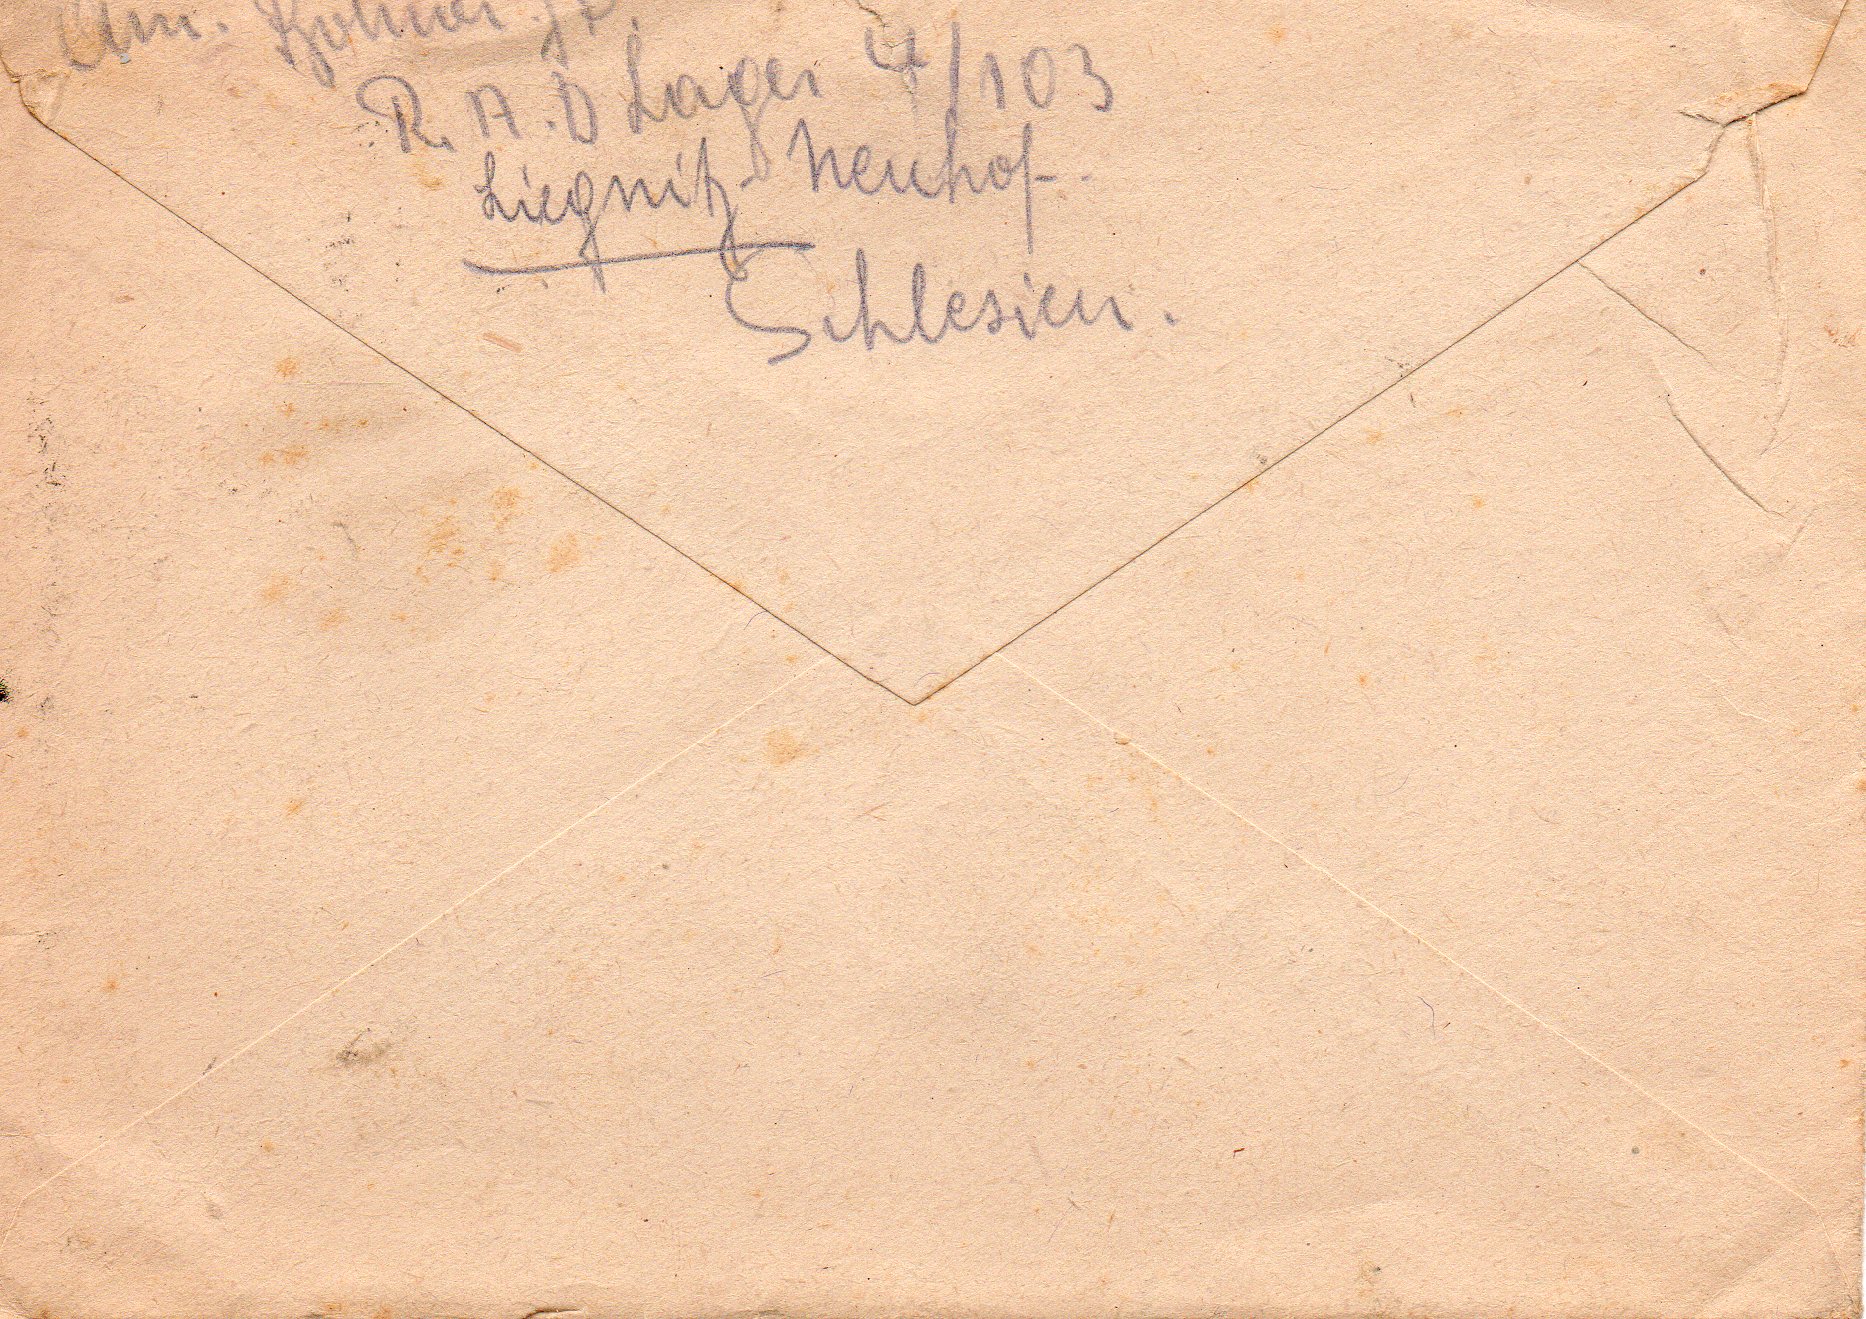 R.A.D Lager 4/103
Liegnitz-Neuhof.
Schlesien.